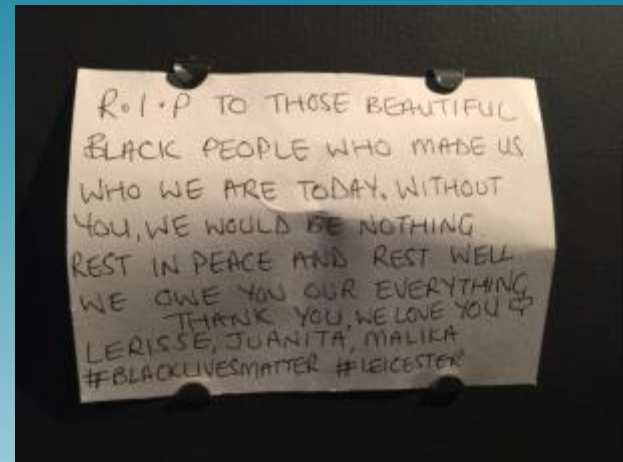 R.I.P TO THOSE BEAUTIFUL
BLACK PEOPLE WHO MADE US
WHO WE ARE TODAY. WITHOUT
YOU, WE WOULD BE NOTHING
REST IN PEACE AND REST WELL
WE OWE YOU OUR EVERYTHING
THANK YOU, WE LOVE YOU ♡
LERISSE, JUANITA, MALIKA
#BLACKLIVESMATTER #LEICESTER